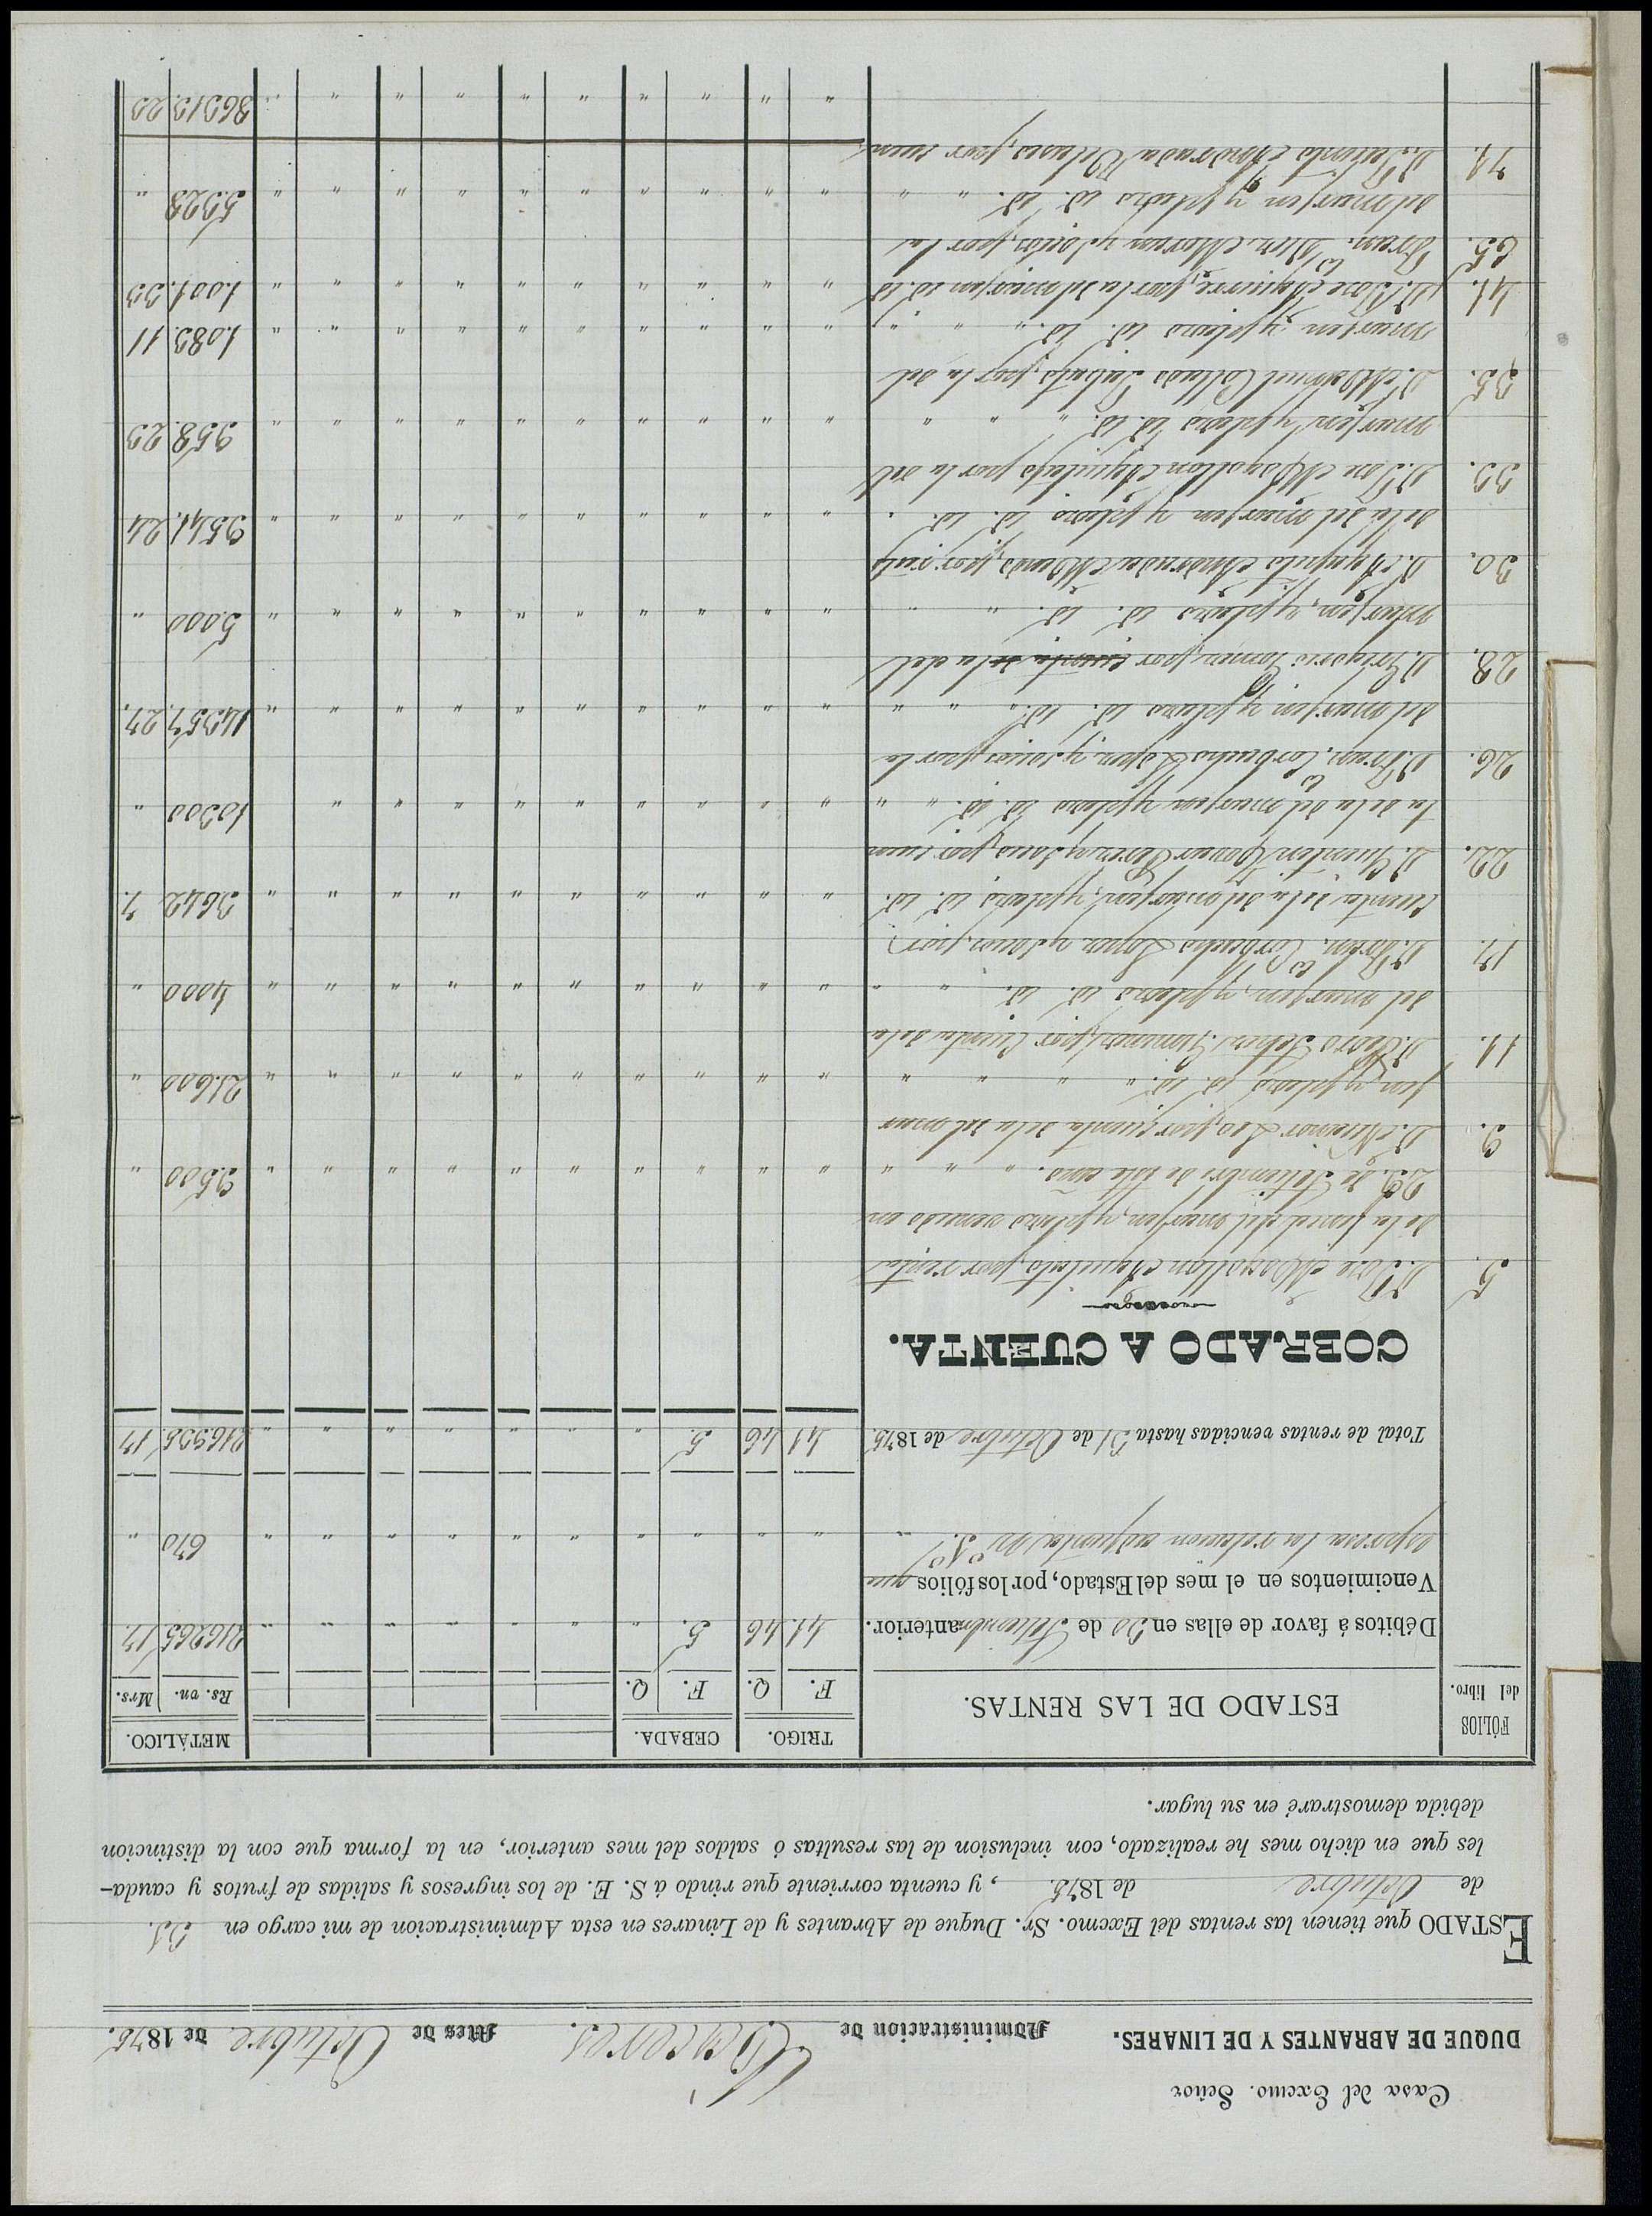 Casa del Excmo. Señor
DUQUE DE ABRANTES Y DE LINARES. Administracion de Cáceres. Mes de Octubre de 1875.
ESTADO que tienen las rentas del Excmo. Sr. Duque de Abrantes y de Linares en esta Administracion de mi cargo en 31.
de Octubre de 1875. , y cuenta corriente que rindo á S. E. de los ingresos y salidas de frutos y cauda-
les que en dicho mes he realizado, con inclusion de las resultas ó saldos del mes anterior, en la forma que con la distincion
debida demostraré en su lugar.
FÓLIOS del libro. ESTADO DE LAS RENTAS. TRIGO. CEBADA. METÁLICO.
F. Q. F. Q. Rs. vn. Mrs.
Débitos á favor de ellas en 30 de Setiembre anterior. 41 46 5. " " " " " " " 216265 17.
Vencimientos en el mes del Estado, por los fólios que
espresa la relacion adjunta nº 1º. " " " " " " " " " " " 670 "
Total de rentas vencidas hasta 31 de Octubre de 1875. 41 46 5. " " " " " " " 216935 17
COBRADO A CUENTA.
5. D. Jose Mogollon Aguilato, por renta
de la finca del margen, y plazo vencido en
29. de Setiembre de este año. " " " " " " " " " " " " " 3500 "
9. D. Nicanor Leo, por cuenta de la del mar
gen y plazo id. id. " " " " " " " " " " " " " " 21600 "
11. D. Pedro Jimenez, por cuenta de la
del margen, y plazo id. id. " " " " " " " " " " " " 4000 "
17. D. Fran.co Corbacho Lopez y Socios, por
cuenta de la del margen, y plazo id. id. " " " " " " " " " " 3642 7.
22. D. Quintin Perez y Socio, por cuen
ta de la del margen y plazo id. id. " " " " " " " " " " " 10300 "
26. D. Fran.co Corbacho Lopez, y socios, por la
del margen y plazo id. id. " " " " " " " " " " " " " 14357. 27.
28. D. Gregorio Tomen, por cuenta de la del
margen, y plazo id. id. " " " " " " " " " " " " 5000 "
30. D. Augusto por renta
de la del margen y plazo id. id. " " " " " " " " " " " 3541. 24
33. D. Jose Mogollon Aguilato por la del
margen y plazo id. id. " " " " " " " " " " " " " 958. 23
35. D. Manuel Collado por la del
margen y plazo id. id. " " " " " " " " " " " " " 1.083. 11
41. D. Jose Aguirre, por la del margen id. id. " " " " " " " " " " 1.001. 33
65. Fran.co Moreno y Socios, por la
del margen y plazo id. id. " " " " " " " " " " " " " 5.328 "
71. por cuen
" " " " " " " " " " 86313. 23